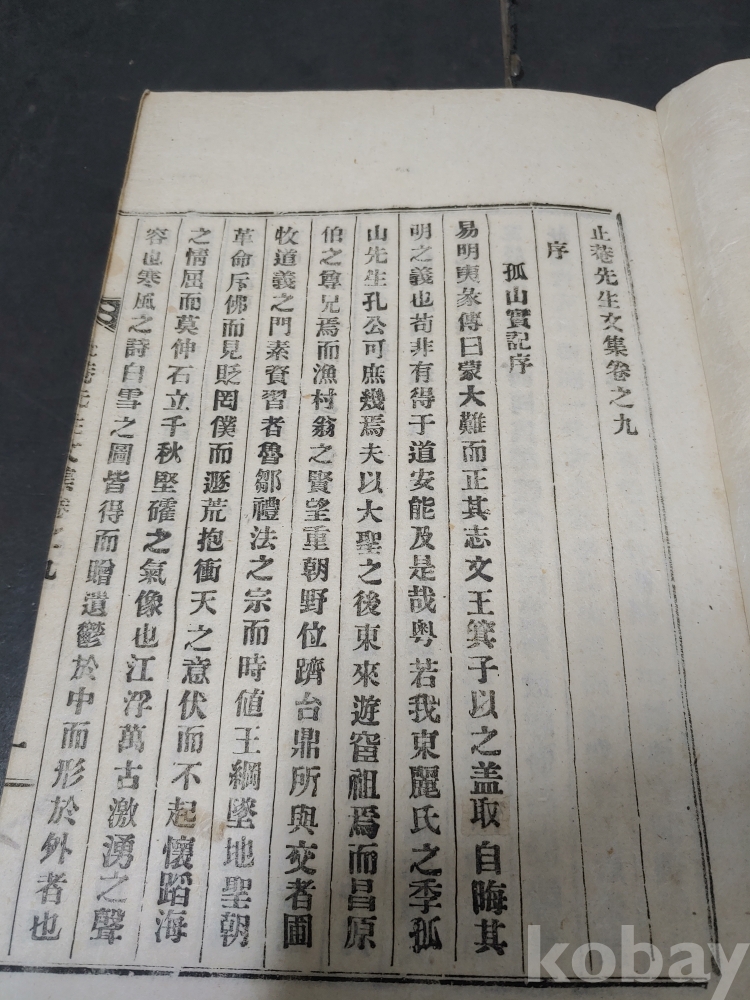 止菴先生文集卷之九
序
孤山實記序
易明夷彖傳曰蒙大難而正其志文王箕子以之盖取自晦其
明之義也苟非有得于道安能及是哉粤若我東麗氏之季孤
山先生孔公可庶幾焉夫以大聖之後東來遊窅祖焉而昌原
伯之尊兄焉而漁村翁之賢望重朝野位躋台鼎所與交者圃
牧道義之門素資習者魯鄒禮法之宗而時値王綱墜地聖朝
革命斥佛而見貶罔僕而遯荒抱衝天之意伏而不起懷蹈海
之情屈而莫伸石立千秋堅確之氣像也江浮萬古激湧之聲
容也寒風之詩白雪之圖皆得而贈遺鬱於中而形於外者也
止菴先生文集卷之九
一
kobay